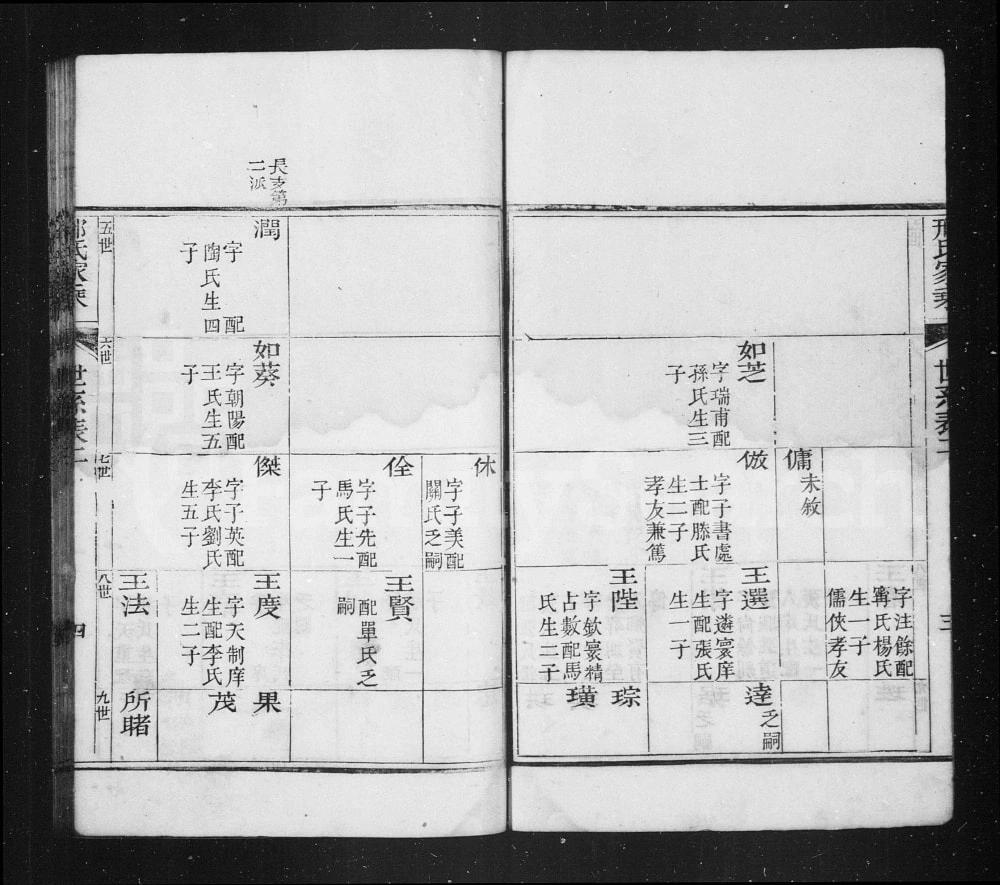 邢氏家乘
世系表二
三
字注餘配
寗氏楊氏
生一子
儒俠孝友
傭
未敘
如芝
字瑞甫配
孫氏生三
子
倣
字子書處
士配滕氏
生二子
孝友兼篤
王選
字遴寰庠
生配張氏
生一子
逹
乏嗣
王陛
字欽寰精
占數配馬
氏生二子
琮
璜
休
字子美配
關氏乏嗣
佺
字子先配
馬氏生一
子
王賢
配單氏乏
嗣
長支第
二派
潤
字 配
陶氏生四
子
如葵
字朝陽配
王氏生五
子
傑
字子英配
李氏劉氏
生五子
王度
字天制庠
生配李氏
生二子
果
茂
王法
所睹
五世
六世
七世
八世
九世
氏家乘
世系表二
四